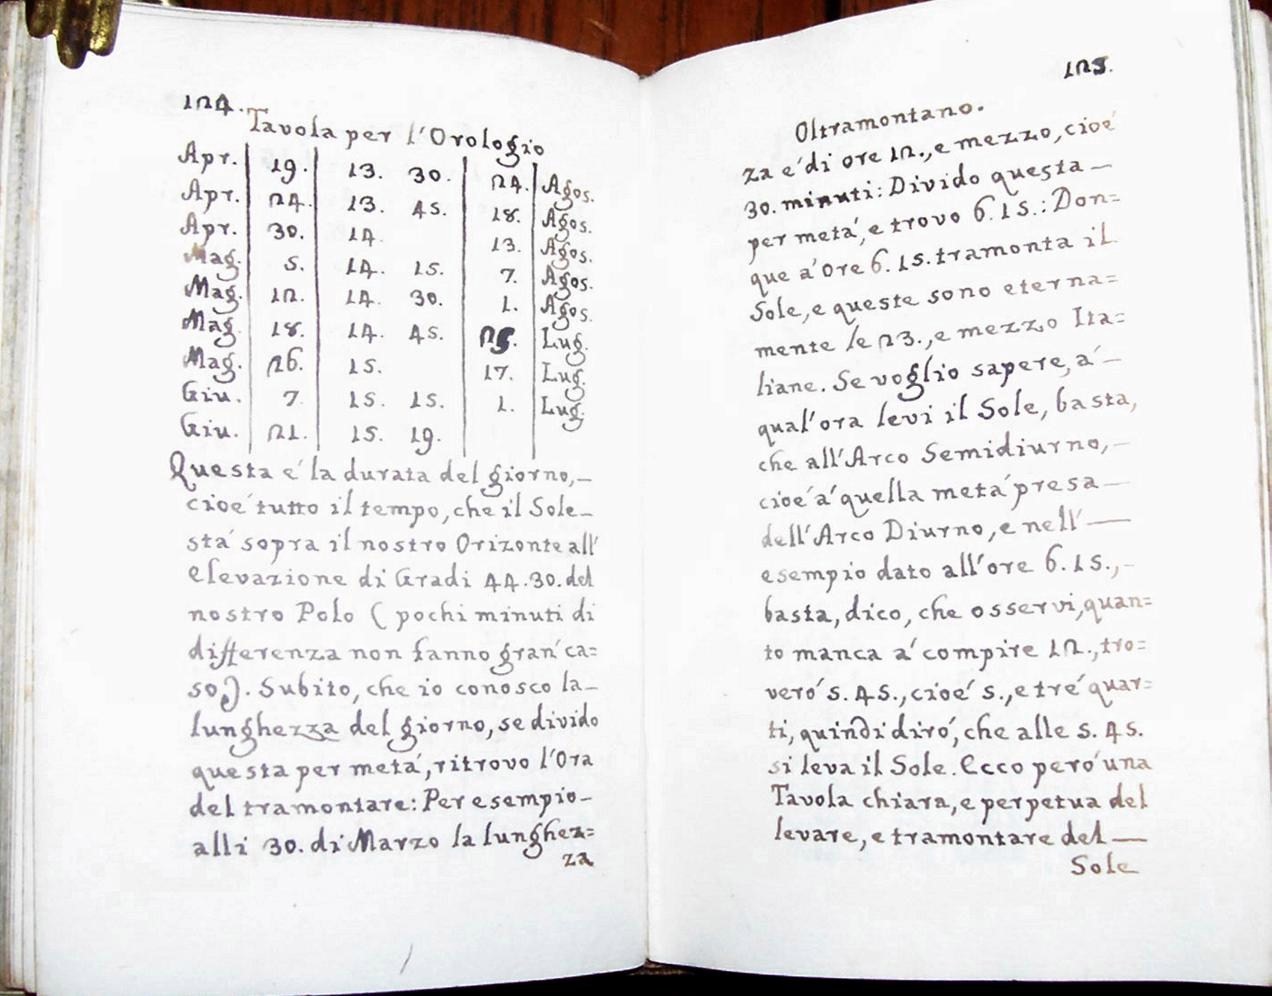 124.
Tavola per l'Orologio
Apr. 19. 13. 30. 24. Agos.
Apr. 24. 13. 45. 18. Agos.
Apr. 30. 14. 13. Agos.
Mag. 5. 14. 15. 7. Agos.
Mag. 12. 14. 30. 1. Agos.
Mag. 18. 14. 45. 25. Lug.
Mag. 26. 15. 17. Lug.
Giu. 7. 15. 15. 1. Lug.
Giu. 21. 15. 19.
Questa é la durata del giorno,
cioé tutto il tempo, che il Sole
stá sopra il nostro Orizonte all'
elevazione di Gradi 44.30. del
nostro Polo (pochi minuti di
differenza non fanno gran' ca=
so). Subito, che io conosco la
lunghezza del giorno, se divido
questa per metá, ritrovo l'Ora
del tramontare: Per esempio
alli 30. di Marzo la lunghez=
za
125.
Oltramontano.
za é di ore 12., e mezzo, cioé
30. minuti: Divido questa
per metá, e trovo 6. 15.: Don=
que á Ore 6. 15. tramonta il
Sole, e queste sono eterna=
mente le 23., e mezzo Ita=
liane. Se voglio sapere, á
qual' ora levi il Sole, basta,
che all'Arco Semidiurno,
cioé á quella metá presa
dell'Arco Diurno, e nell'
esempio dato all'ore 6. 15.,
basta, dico, che osservi, quan=
to manca á compire 12., tro=
veró 5. 45., cioé 5., e tré quar=
ti, quindi diró, che alle 5. 45.
si leva il Sole. Ecco peró una
Tavola chiara, e perpetua del
levare, e tramontare del
Sole